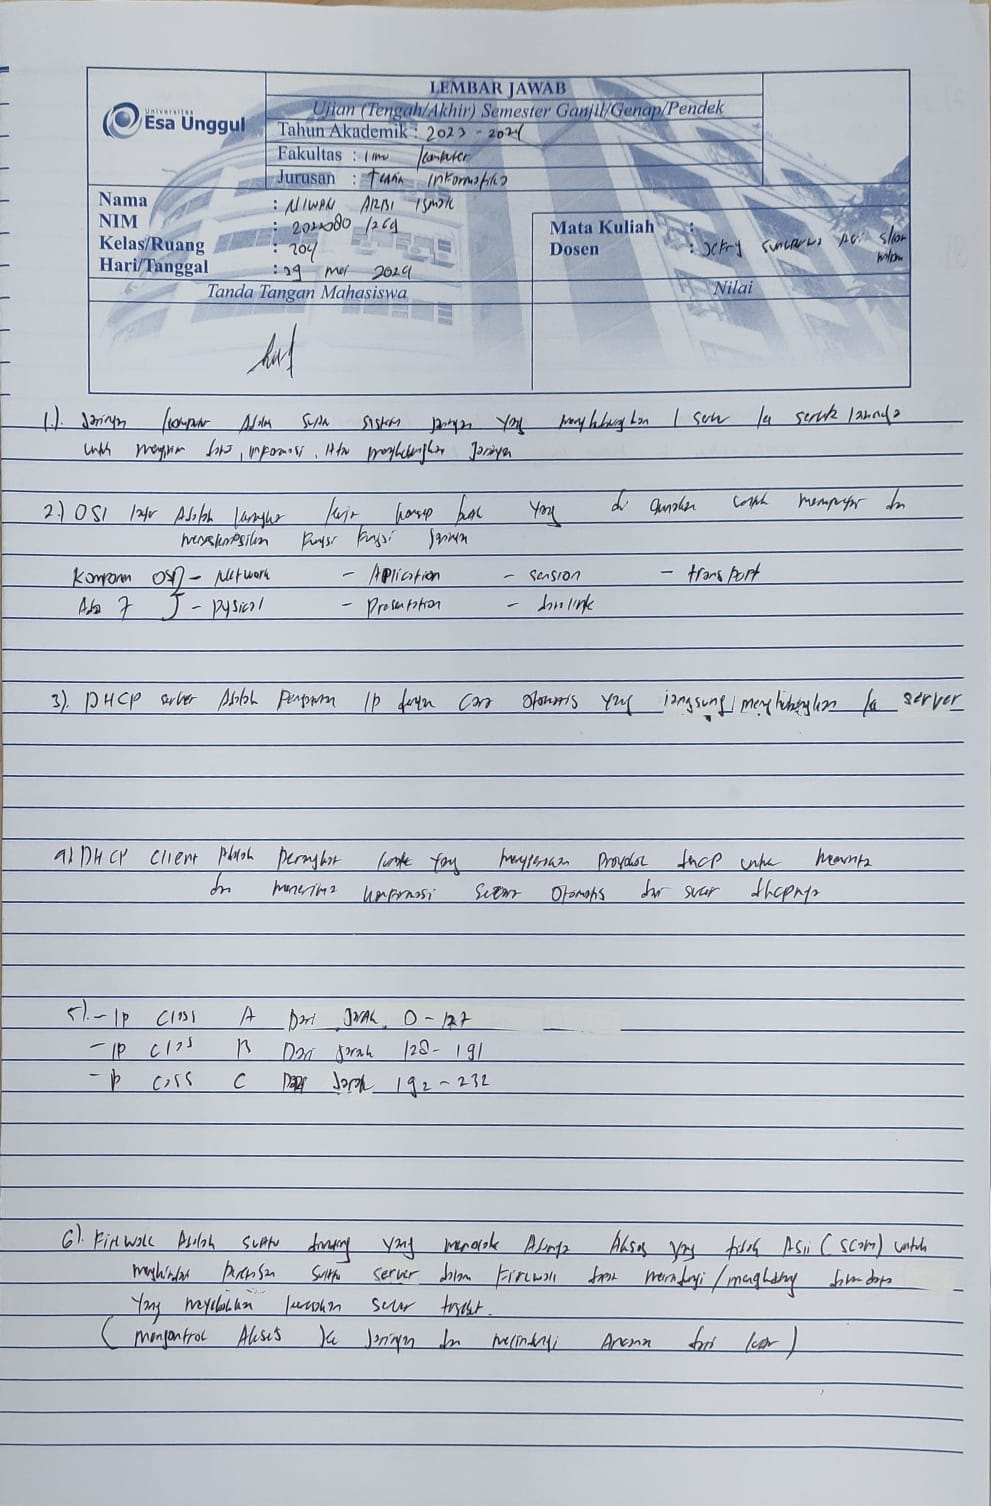 LEMBAR JAWAB
Universitas
Esa Unggul
Ujian (Tengah/Akhir) Semester Ganjil/Genap/Pendek
Tahun Akademik : 2023 - 2024
Fakultas : Ilmu komputer
Jurusan : Teknik informatika
Nama : ARBI
NIM
Kelas/Ruang : 204
Hari/Tanggal : 29 mei 2024
Mata Kuliah :
Dosen :
Tanda Tangan Mahasiswa
Nilai
1.). Jaringan komputer Adalah suatu sistem jaringan yang menghubungkan 1 server ke server lainnya
untuk mengirim data, informasi, Atau menghubungkan Jaringan
2.) OSI layer Adalah kerangka kerja konsep yang di gunakan untuk dan
fungsi fungsi Jaringan
Komponen OSI - Network - Aplication - sension - transport
Ada 7 - pysical - Presentation - data link
3). DHCP server Adalah IP dengan cara otomatis yang langsung menghubungkan ke server
4) DHCP client Adalah Perangkat yang DHCP untuk meminta
dan menerima secara otomatis dari server dhcpnya
5). - Ip class A Dari Jarak 0 - 127
- Ip class B Dari jarak 128 - 191
- Ip class C Dari Jarak 192 - 232
6). Firewall Adalah suatu dinding yang menolak Adanya Akses yang tidak Asli (scam) untuk
menghindari suatu server dalam Firewall dapat / menghadang
yang menyebabkan kerusakan server tersebut.
( mengontrol Akses ke Jaringan dan melindungi Ancaman dari luar )